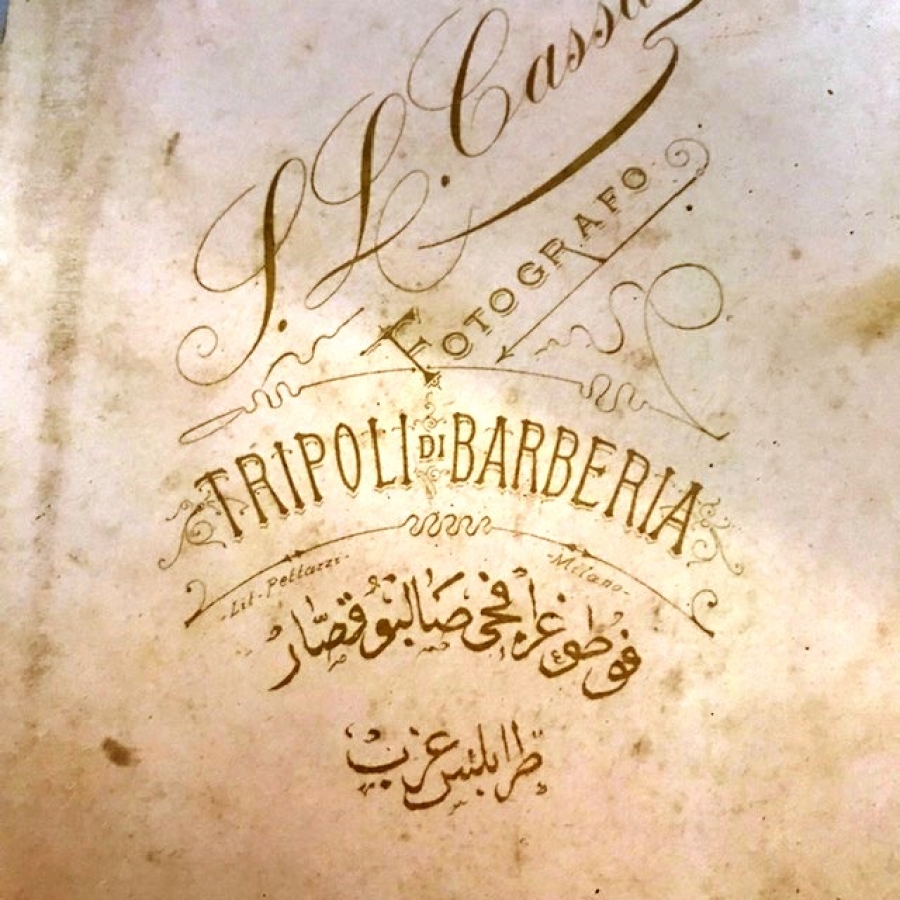 S. L. Cassa
FOTOGRAFO
TRIPOLI DI BARBERIA
-Lit. Pellazzi- -Milano-
فوطوغرافجی صالبتو قصّار
طرابلس غرب